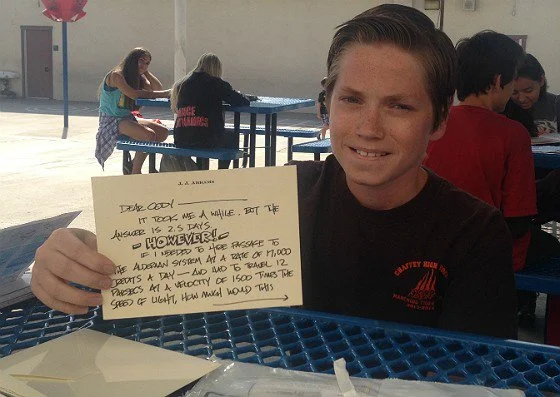 J. J. ABRAMS
DEAR CODY
IT TOOK ME A WHILE, BUT THE
ANSWER IS 2.5 DAYS.
- HOWEVER! -
IF I NEEDED TO HIRE PASSAGE TO
THE ALDERAAN SYSTEM AT A RATE OF 17,000
CREDITS A DAY — AND HAD TO TRAVEL 12
PARSECS AT A VELOCITY OF 1500 TIMES THE
SPEED OF LIGHT, HOW MUCH WOULD THIS
CHAFFEY HIGH